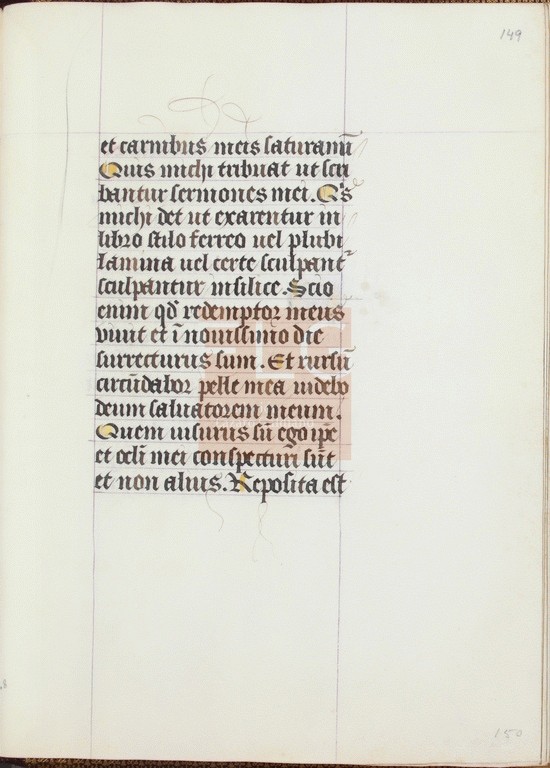 149
et carnibus meis saturamī
Quis michi tribuat ut scri
bantur sermones mei. Qͥs
michi det ut exarentur in
libro stilo ferreo uel plūbi
lamina uel certe sculpant᷑
sculpantur in silice. Scio
enim qđ redemptor meus
viuit et ī nouissimo die
surrecturus sum. Et rursū
circūdabor pelle mea uidebo
deum saluatorem meum.
Quem uisurus sū ego ip̄e
et ocl̄i mei conspecturi sūt
et non alius. Reposita est
150